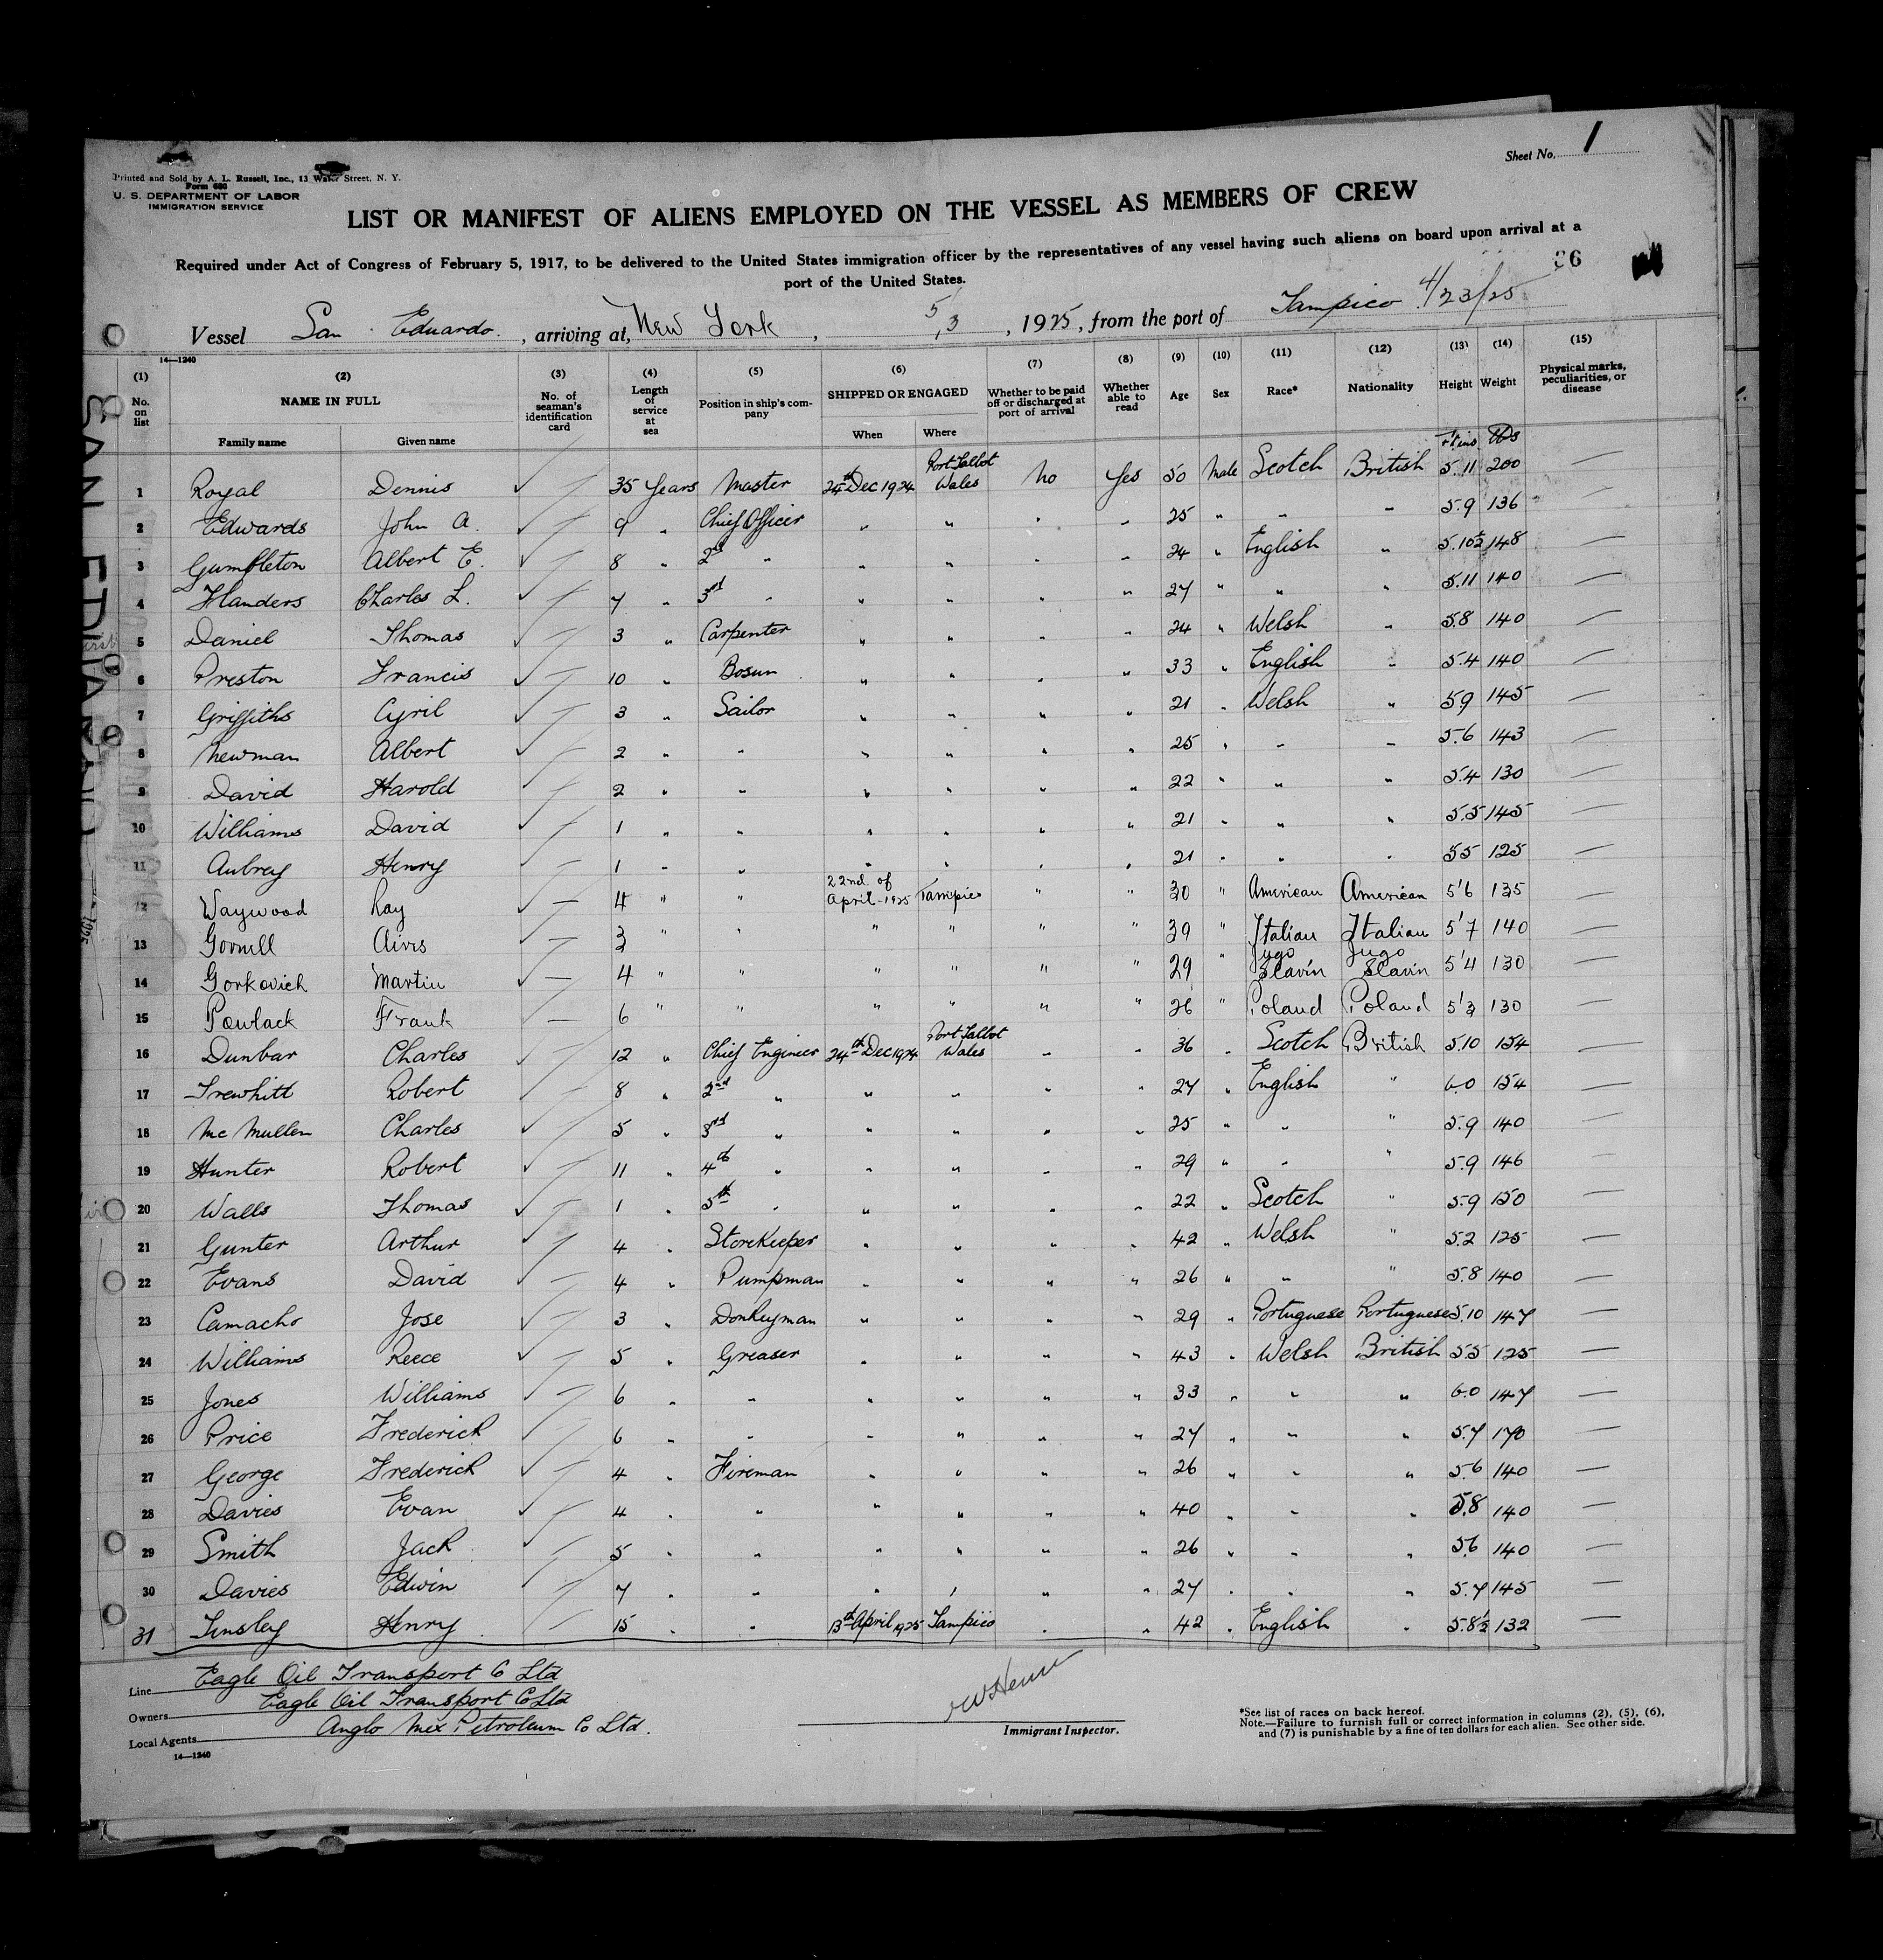 Sheet No. 1
Printed and Sold by A. L. Russell, Inc., 13 Water Street, N. Y.
Form 680
U. S. DEPARTMENT OF LABOR
IMMIGRATION SERVICE
LIST OR MANIFEST OF ALIENS EMPLOYED ON THE VESSEL AS MEMBERS OF CREW
Required under Act of Congress of February 5, 1917, to be delivered to the United States immigration officer by the representatives of any vessel having such aliens on board upon arrival at a
port of the United States.
Vessel San Eduardo, arriving at, New York, 5/3, 1925, from the port of Tampico 4/23/25
14—1240
(1) (2) (3) (4) (5) (6) (7) (8) (9) (10) (11) (12) (13) (14) (15)
No. on list NAME IN FULL No. of seaman's identification card Length of service at sea Position in ship's company SHIPPED OR ENGAGED Whether to be paid off or discharged at port of arrival Whether able to read Age Sex Race* Nationality Height Weight Physical marks, peculiarities, or disease
Family name Given name When Where
Ft ins lbs
1 Royal Dennis ✓ 35 Years Master 24th Dec 1924 Port Talbot Wales No Yes 50 Male Scotch British 5.11 200 —
2 Edwards John A. ✓ 9 " Chief Officer " " " " 25 " " " 5.9 136 —
3 Gumpleton Albert E. ✓ 8 " 2nd " " " " " 24 " English " 5.10½ 148 —
4 Flanders Charles L. ✓ 7 " 3rd " " " " " 27 " " " 5.11 140 —
5 Daniel Thomas ✓ 3 " Carpenter " " " " 24 " Welsh " 5.8 140 —
6 Preston Francis ✓ 10 " Bosun " " " " 33 " English " 5.4 140 —
7 Griffiths Cyril ✓ 3 " Sailor " " " " 21 " Welsh " 5.9 145 —
8 Newman Albert ✓ 2 " " " " " " 25 " " " 5.6 143 —
9 David Harold ✓ 2 " " " " " " 22 " " " 5.4 130 —
10 Williams David ✓ 1 " " " " " " 21 " " " 5.5 145 —
11 Aubrey Henry ✓ 1 " " " " " " 21 " " " 5.5 125 —
12 Waywood Ray ✓ 4 " " 22nd. of April-1925 Tampico " " 30 " American American 5'6 135 —
13 3 " " " " " " 39 " Italian Italian 5'7 140 —
14 Gorkovich Martin ✓ 4 " " " " " " 29 " Jugo Slavin Jugo Slavin 5'4 130 —
15 Pawlack Frank 6 " " " " " 26 " Poland Poland 5'3 130 —
16 Dunbar Charles ✓ 12 " Chief Engineer 24th Dec 1924 Port Talbot Wales " " 36 " Scotch British 5.10 154 —
17 Trewhitt Robert ✓ 8 " 2nd " " " " " 27 " English " 6.0 154 —
18 McMullen Charles ✓ 5 " 3rd " " " " " 25 " " " 5.9 140 —
19 Hunter Robert ✓ 11 " 4th " " " " " 29 " " " 5.9 146 —
20 Walls Thomas ✓ 1 " 5th " " " " " 22 " Scotch " 5.9 150 —
21 Gunter Arthur ✓ 4 " Storekeeper " " " " 42 " Welsh " 5.2 125 —
22 Evans David ✓ 4 " Pumpman " " " " 26 " " " 5.8 140 —
23 Camacho Jose ✓ 3 " Donkeyman " " " " 29 " Portuguese Portuguese 5.10 147 —
24 Williams Reece ✓ 5 " Greaser " " " " 43 " Welsh British 5.5 125 —
25 Jones Williams ✓ 6 " " " " " " 33 " " " 6.0 147 —
26 Price Frederick ✓ 6 " " " " " " 27 " " " 5.7 170 —
27 George Frederick ✓ 4 " Fireman " " " " 26 " " " 5.6 140 —
28 Davies Evan ✓ 4 " " " " " " 40 " " " 5.8 140 —
29 Smith Jack ✓ 5 " " " " " " 26 " " " 5.6 140 —
30 Davies Edwin ✓ 7 " " " " " " 27 " " " 5.7 145 —
31 Tinsley Henry 15 " " April 1925 Tampico " " 42 " English " 5.8½ 132 —
Line Eagle Oil Transport Co Ltd
Owners Eagle Oil Transport Co Ltd
Local Agents Anglo Mex Petroleum Co Ltd.
14—1240
Immigrant Inspector.
*See list of races on back hereof.
Note.—Failure to furnish full or correct information in columns (2), (5), (6),
and (7) is punishable by a fine of ten dollars for each alien. See other side.